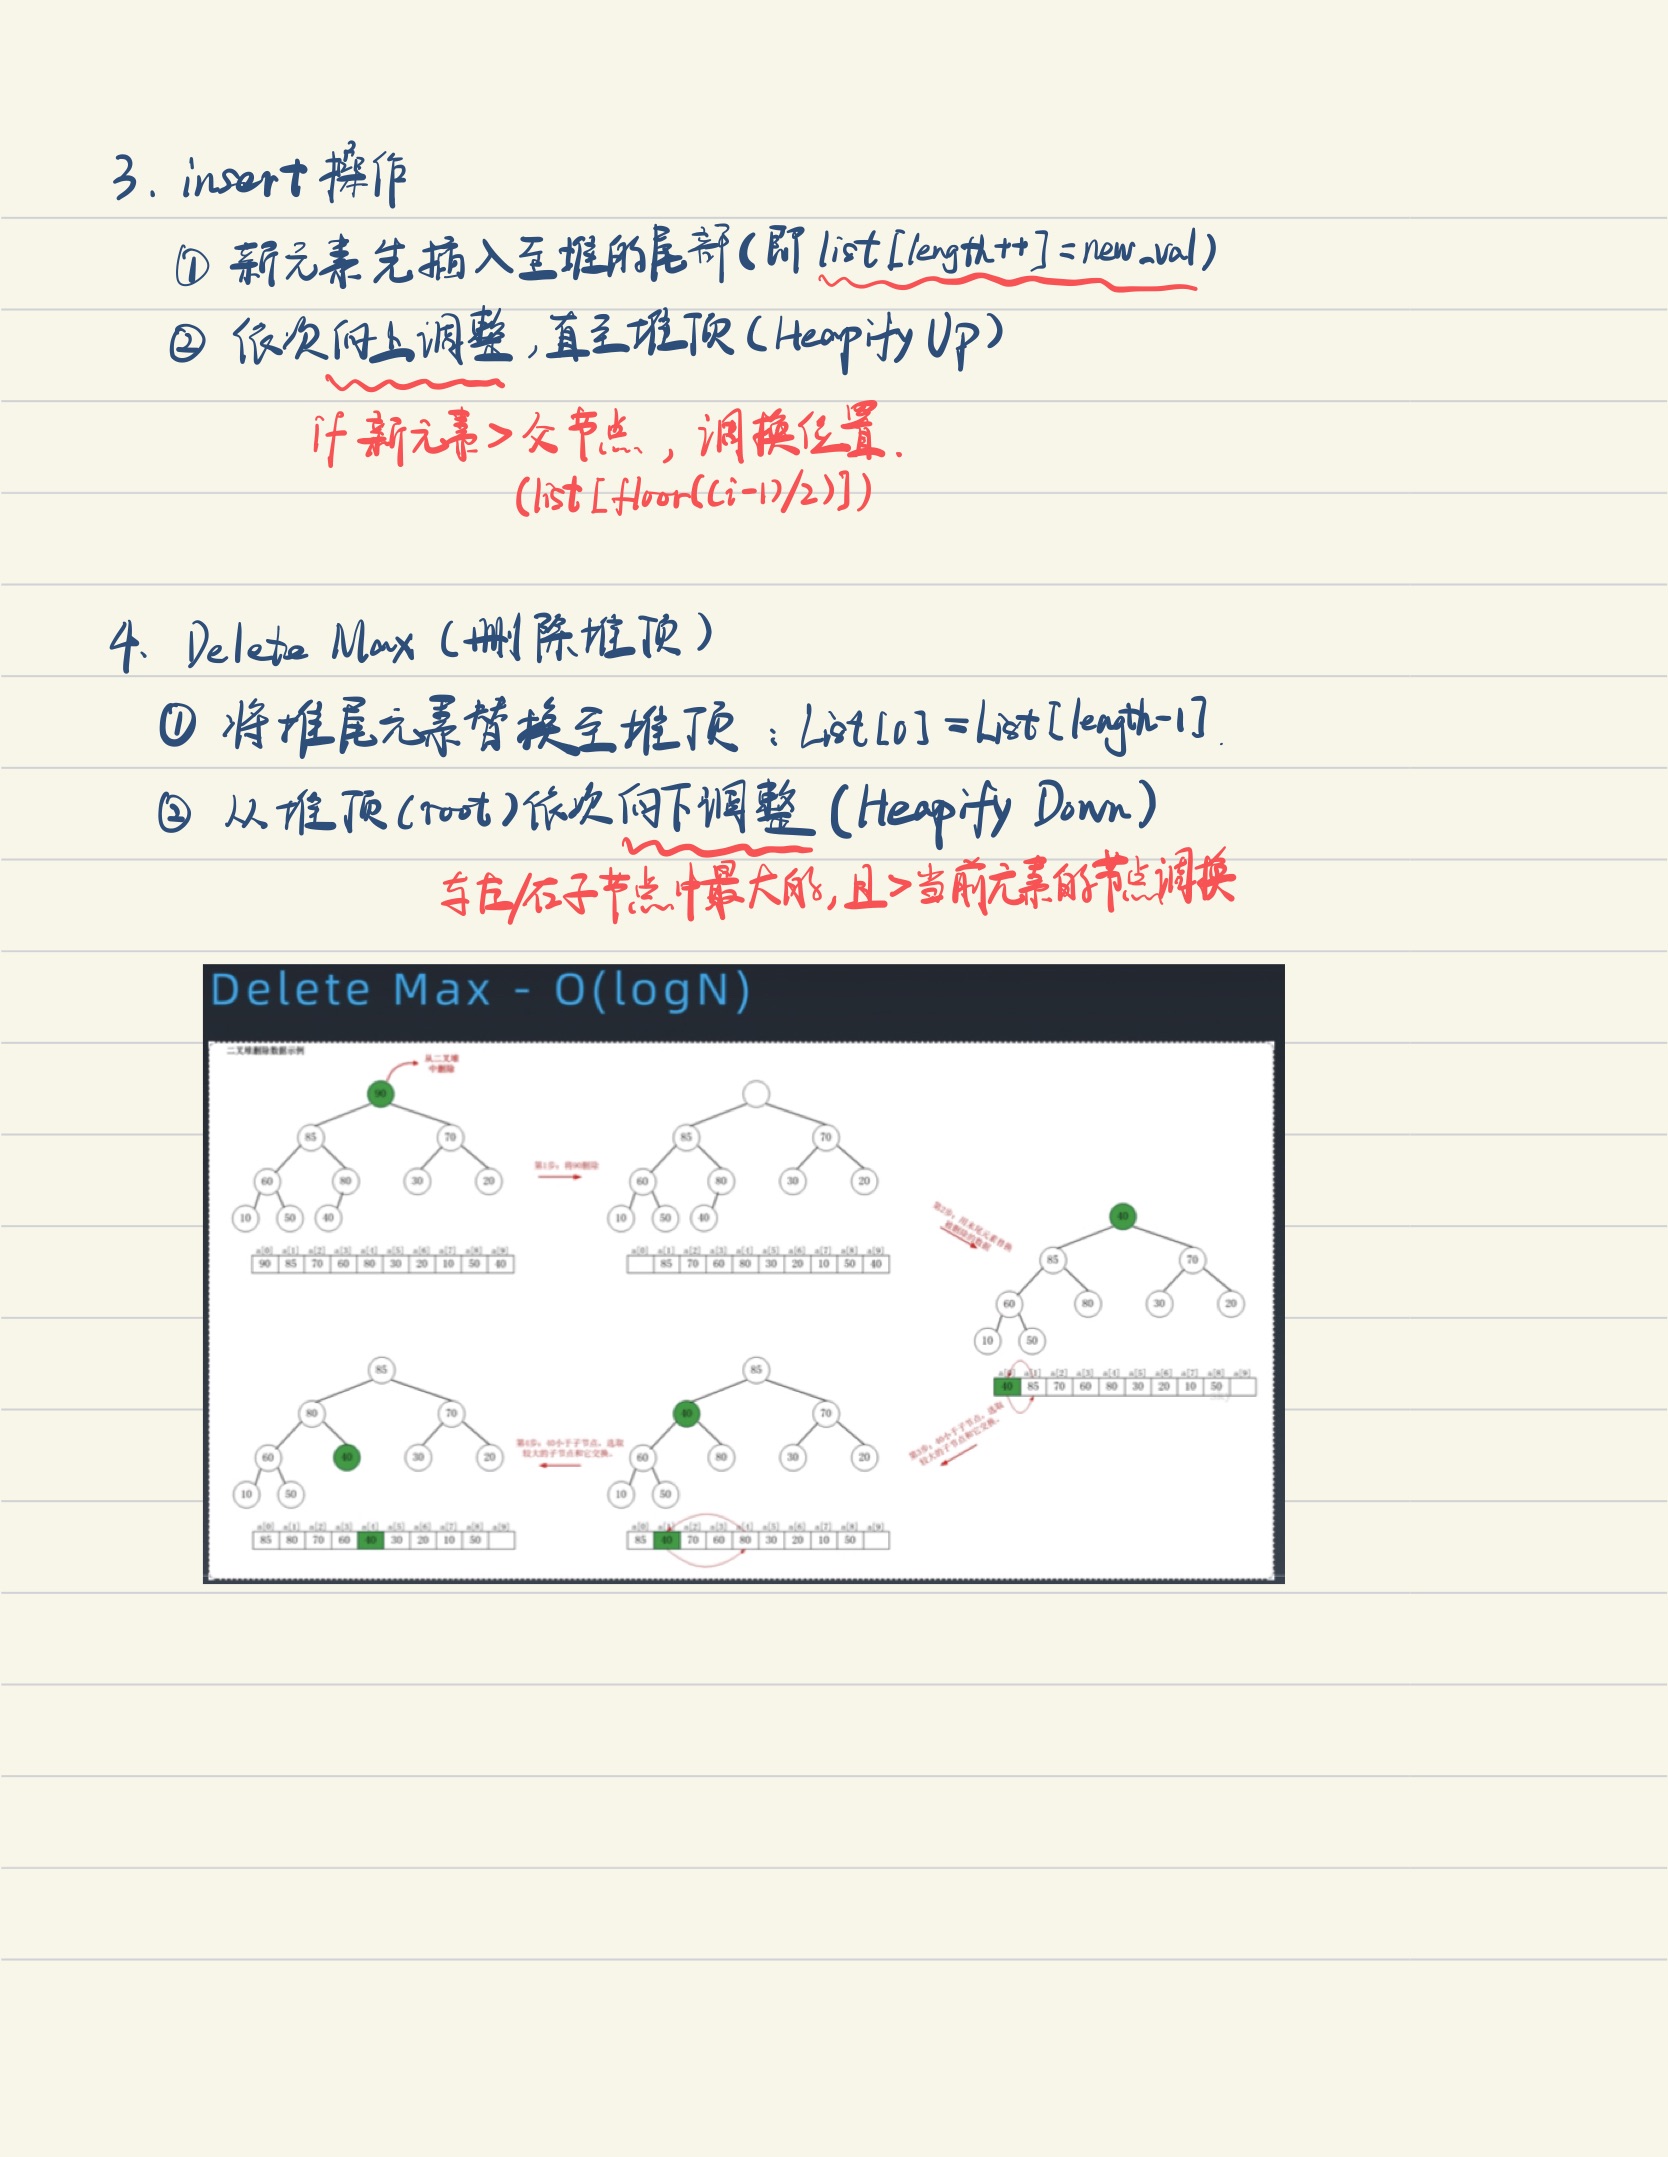 3. insert 操作
① 新元素先插入至堆的尾部(即 list[length++]=new_val)
② 依次向上调整,直至堆顶(Heapify Up)
if 新元素>父节点,调换位置.
(list[floor((i-1)/2)])
4. Delete Max (删除堆顶)
① 将堆尾元素替换至堆顶:List[0]=List[length-1].
② 从堆顶(root)依次向下调整(Heapify Down)
与左/右子节点中最大的,且>当前元素的节点调换
Delete Max - O(logN)
二叉堆删除数据示例
从二叉堆
中删除
90
85 70
60 80 30 20
10 50 40
a[0] a[1] a[2] a[3] a[4] a[5] a[6] a[7] a[8] a[9]
90 85 70 60 80 30 20 10 50 40
第1步:将90删除
85 70
60 80 30 20
10 50 40
a[0] a[1] a[2] a[3] a[4] a[5] a[6] a[7] a[8] a[9]
85 70 60 80 30 20 10 50 40
第2步:用末尾元素替换
被删除的数据
40
85 70
60 80 30 20
10 50
a[0] a[1] a[2] a[3] a[4] a[5] a[6] a[7] a[8] a[9]
40 85 70 60 80 30 20 10 50
第3步:40小于子节点,选取
较大的子节点和它交换。
85
40 70
60 80 30 20
10 50
a[0] a[1] a[2] a[3] a[4] a[5] a[6] a[7] a[8] a[9]
85 40 70 60 80 30 20 10 50
第4步:40小于子节点,选取
较大的子节点和它交换。
85
80 70
60 40 30 20
10 50
a[0] a[1] a[2] a[3] a[4] a[5] a[6] a[7] a[8] a[9]
85 80 70 60 40 30 20 10 50